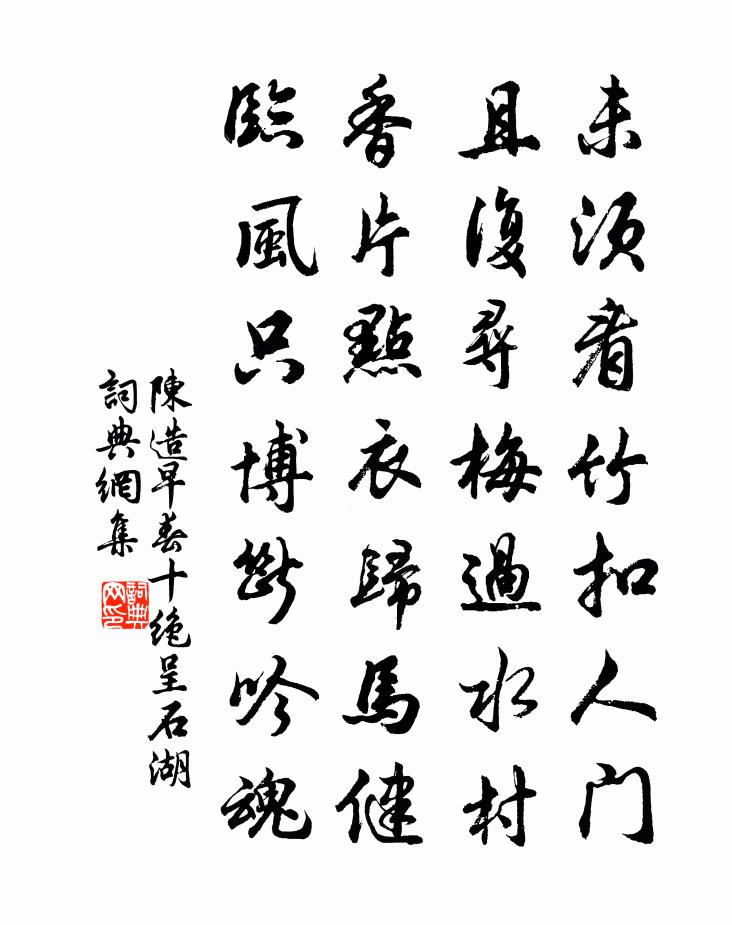 未須看竹扣人門
且復尋梅過水村
香片點衣歸馬健
臨風只博斷吟魂
陳造早春十絕呈石湖
詞典網集
詞典
网印